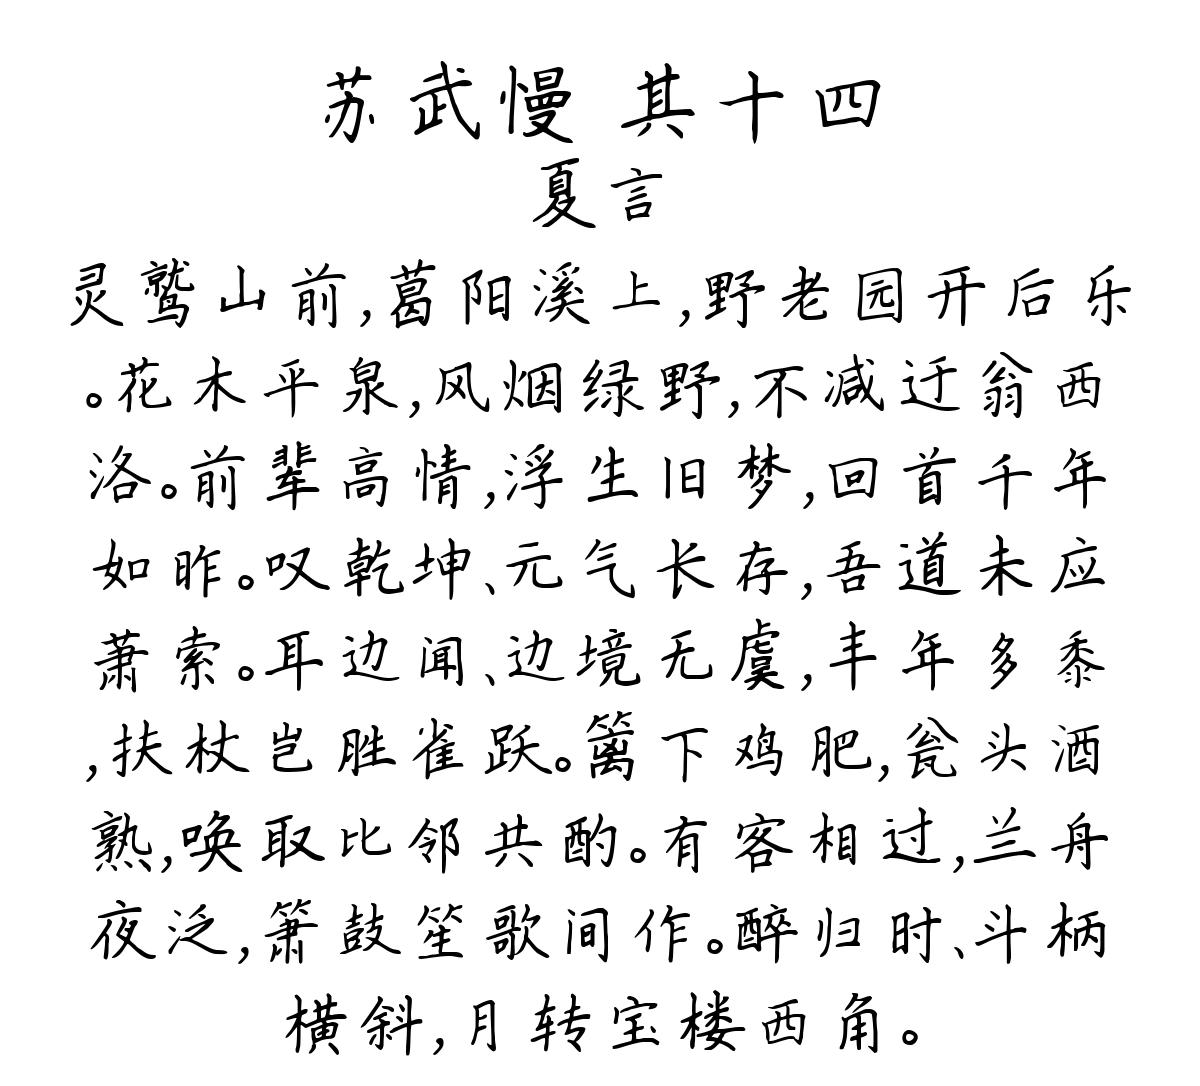 苏武慢 其十四
夏言
灵鹫山前,葛阳溪上,野老园开后乐
。花木平泉,风烟绿野,不减迂翁西
洛。前辈高情,浮生旧梦,回首千年
如昨。叹乾坤、元气长存,吾道未应
萧索。耳边闻、边境无虞,丰年多黍
,扶杖岂胜雀跃。篱下鸡肥,瓮头酒
熟,唤取比邻共酌。有客相过,兰舟
夜泛,箫鼓笙歌间作。醉归时、斗柄
横斜,月转宝楼西角。